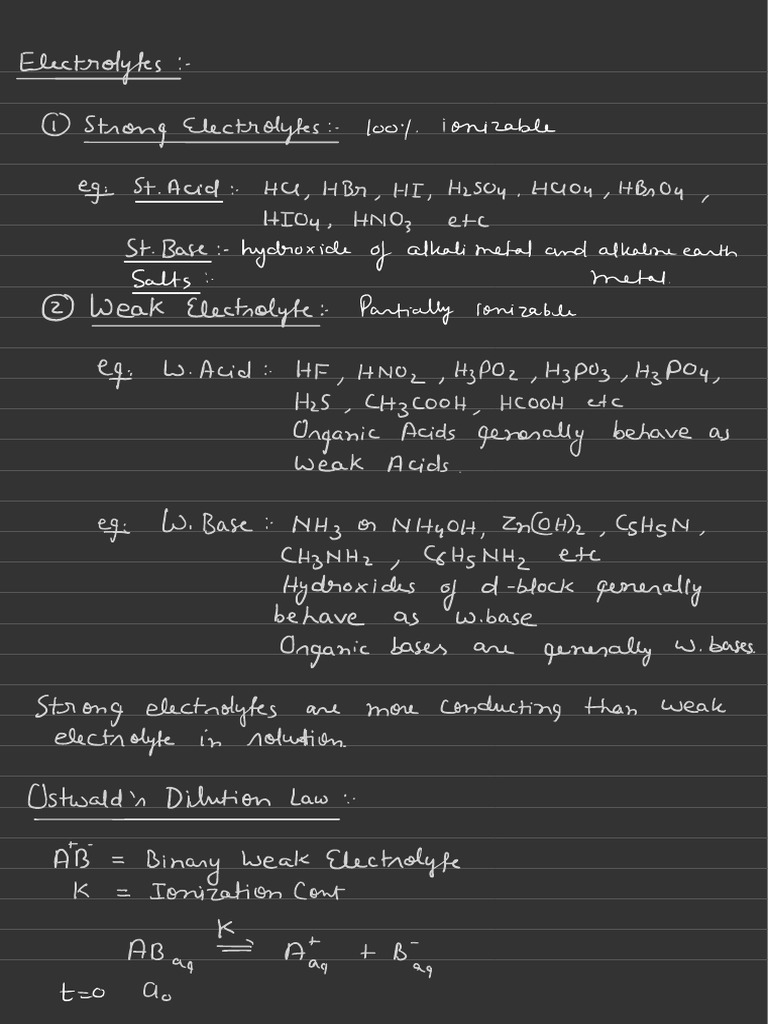 Electrolytes :-
① Strong Electrolytes :- 100% ionizable
eg: St. Acid :- HCl, HBr, HI, H2SO4, HClO4, HBrO4,
HIO4, HNO3 etc
St. Base :- hydroxide of alkali metal and alkaline earth
metal.
Salts :-
② Weak Electrolyte :- Partially ionizable
eg. W. Acid :- HF, HNO2, H3PO2, H3PO3, H3PO4,
H2S, CH3COOH, HCOOH etc
Organic Acids generally behave as
Weak Acids.
eg: W. Base :- NH3 or NH4OH, Zn(OH)2, C5H5N,
CH3NH2, C6H5NH2 etc
Hydroxides of d-block generally
behave as w.base
Organic bases are generally w. bases.
Strong electrolytes are more conducting than weak
electrolyte in solution.
Ostwald's Dilution Law :-
A+B- = Binary Weak Electrolyte
K = Ionization Cont
K
ABaq ⇌ A+aq + B-aq
t=0 a0